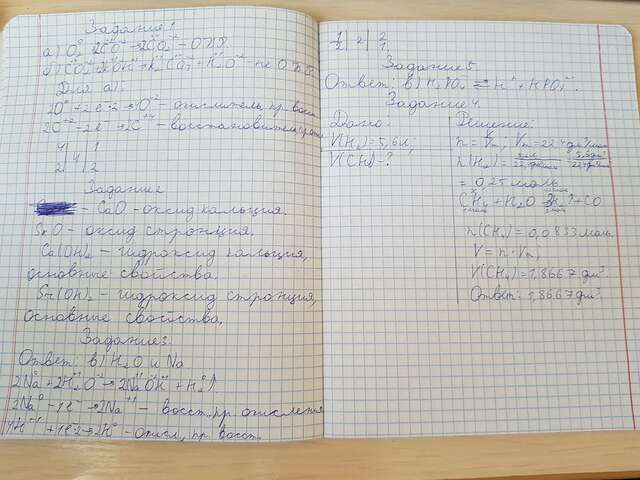 Задание 1
а) O₂⁰ + 2C⁺²O⁻² → 2C⁺⁴O₂⁻² - ОВР.
б) CO₂ + 2KOH → K₂CO₃ + H₂O - не ОВР
Для а):
2O⁰ + 2e · 2 → O⁻² - окислитель, пр. восст.
2C⁺² - 2e⁻ → 2C⁺⁴ - восстановитель,
4 | | 1
| 4 |
2 | | 2
Задание 2
- CaO - оксид кальция.
SrO - оксид стронция.
Ca(OH)₂ - гидроксид кальция,
основные свойства.
Sr(OH)₂ - гидроксид стронция,
основные свойства.
Задание 3.
Ответ: в) H₂O и Na
2Na + 2H₂O → 2NaOH + H₂↑
2Na⁰ - 1e⁻ → 2Na⁺¹ - восст. пр. окисления
+ 1e · 2 → 2H⁰ - окисл., пр. восст.
1 | 2 | 2
2 | | 1
Задание 5.
Ответ: в) H₂PO₄⁻ ⇄ H⁺ + HPO₄²⁻
Задание 4.
Дано:
V(H₂) = 5,6 л;
V(CH₄) - ?
Решение:
n = V/Vm, Vm = 22,4 дм³/моль
n(H₂) = 5,6 дм³ / 22,4 дм³
= 0,25 моль
CH₄ + H₂O → 3H₂↑ + CO
n(CH₄) = 0,0833 моль
V = n · Vm,
V(CH₄) = 1,8667 дм³
Ответ: 1,8667 дм³